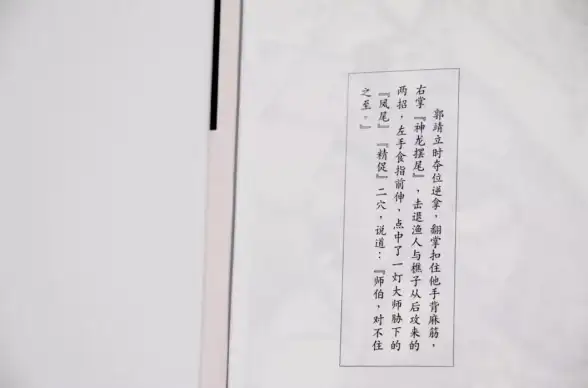 郭靖立时夺位逆拿，翻掌扣住他手背麻筋，
右掌『神龙摆尾』，击退渔人与樵子从后攻来的
两招，左手食指前伸，点中了一灯大师胁下的
『凤尾』『精促』二穴，说道：『师伯，对不住
之至。』